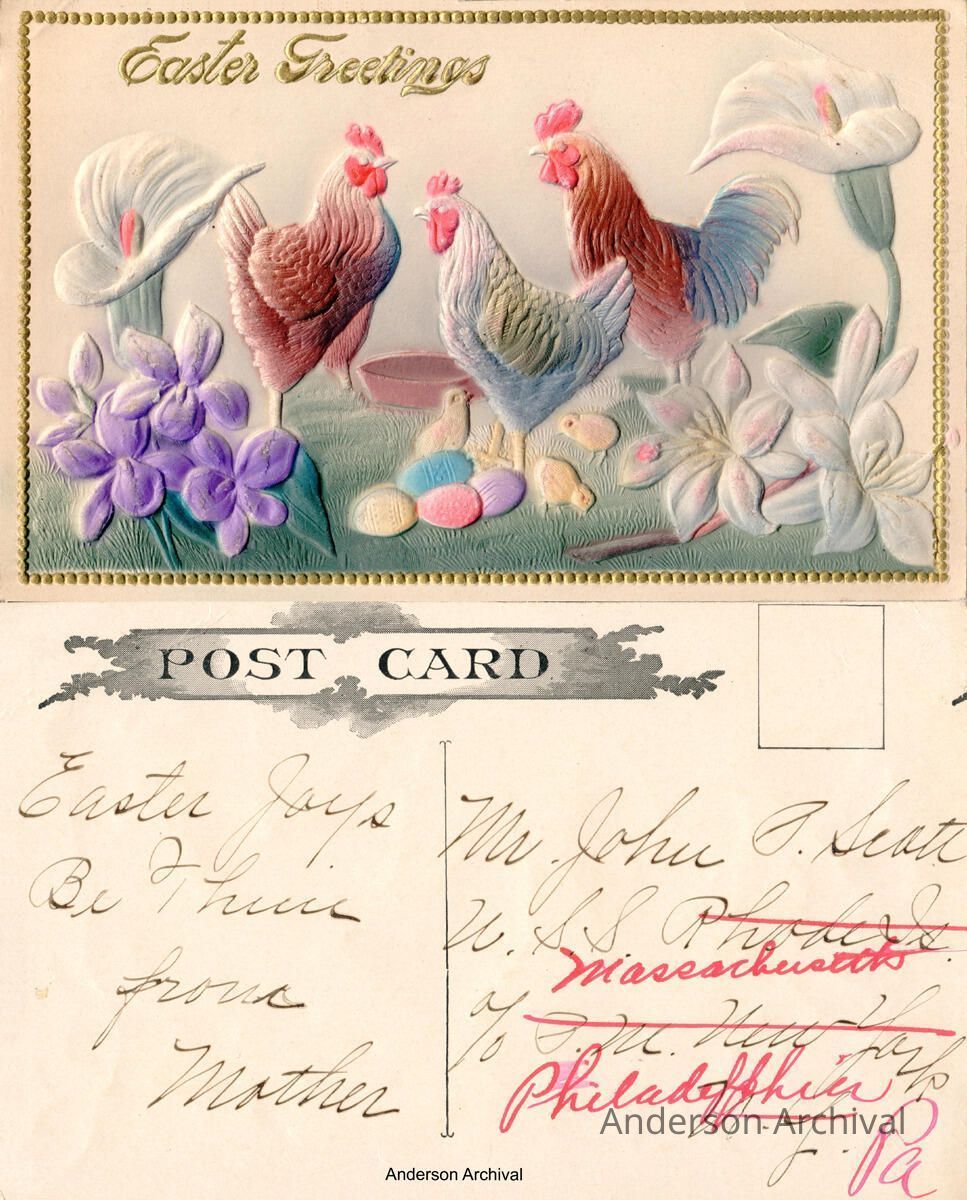 Easter Greetings
POST CARD
Easter Joys
Be Thine
from
Mother
Mr. John P. Scott
U.S.S Rhode Is.
Massachusetts
c/o P.M. New York
Philadelphia
N.Y.
Pa
Anderson Archival
Anderson Archival